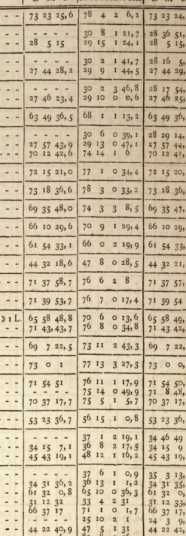 73 23 25,6 78 4 2 6,2 73 23 24,
- - - - 30 8 1 21,7 28 36 51,
28 5 15 29 15 1 24,1 28 5 15,
- - - - 30 2 1 41,7 28 16 5,
27 44 28,2 29 9 1 44,5 27 44 29,
- - - - 30 2 3 46,8 28 17 54,
27 46 23,4 29 10 0 0,6 27 46 25,
63 49 36,5 68 1 1 13,2 63 49 36,
- - - - 30 6 0 39,1 28 29 14,
27 57 43,9 29 13 0 47,1 27 57 44,
70 12 42,6 74 14 1 6 70 12 41,
72 15 21,0 77 1 0 34,4 72 15 20,
73 18 36,6 78 3 0 33,2 73 18 36,
69 35 48,0 74 3 3 8,5 69 35 47,
66 10 29,6 70 9 1 29,4 66 10 29,
61 54 33,1 66 0 2 19,9 61 54 33,
44 32 18,6 47 8 0 28,5 44 32 21,
71 37 58,7 76 6 2 8 71 37 57,
71 39 53,7 76 7 0 17,4 71 39 54
65 58 48,8 70 6 0 13,6 65 58 49,
71 43 43,7 76 8 0 34,8 71 43 42,
69 7 22,5 73 11 2 43,3 69 7 22,
73 0 1 77 13 3 27,3 73 0 0,
71 54 51 76 11 1 17,9 71 54 50,
- - - - 75 14 0 49,9 71 8 48,
70 37 17,7 75 1 5,7 70 37 17,
53 23 36,7 56 15 1 0,8 53 23 36,
- - - - 37 1 2 19,1 34 46 49
34 15 7,1 36 8 2 17,5 34 15 9
45 43 19,1 48 12 1 16,2 45 43
- - - - 37 6 1 0,9 35 3 13,
34 31 36,2 36 13 1 1,2 34 31
61 32 0,8 65 10 0 36,3 61 32 0,
31 12 32 33 4 2 31 12
66 37 17 71 1 0 1,7 66 37 17
- - - - 25 10 2 24 3 9,
44 22 40,9 47 5 1 44 22 40,